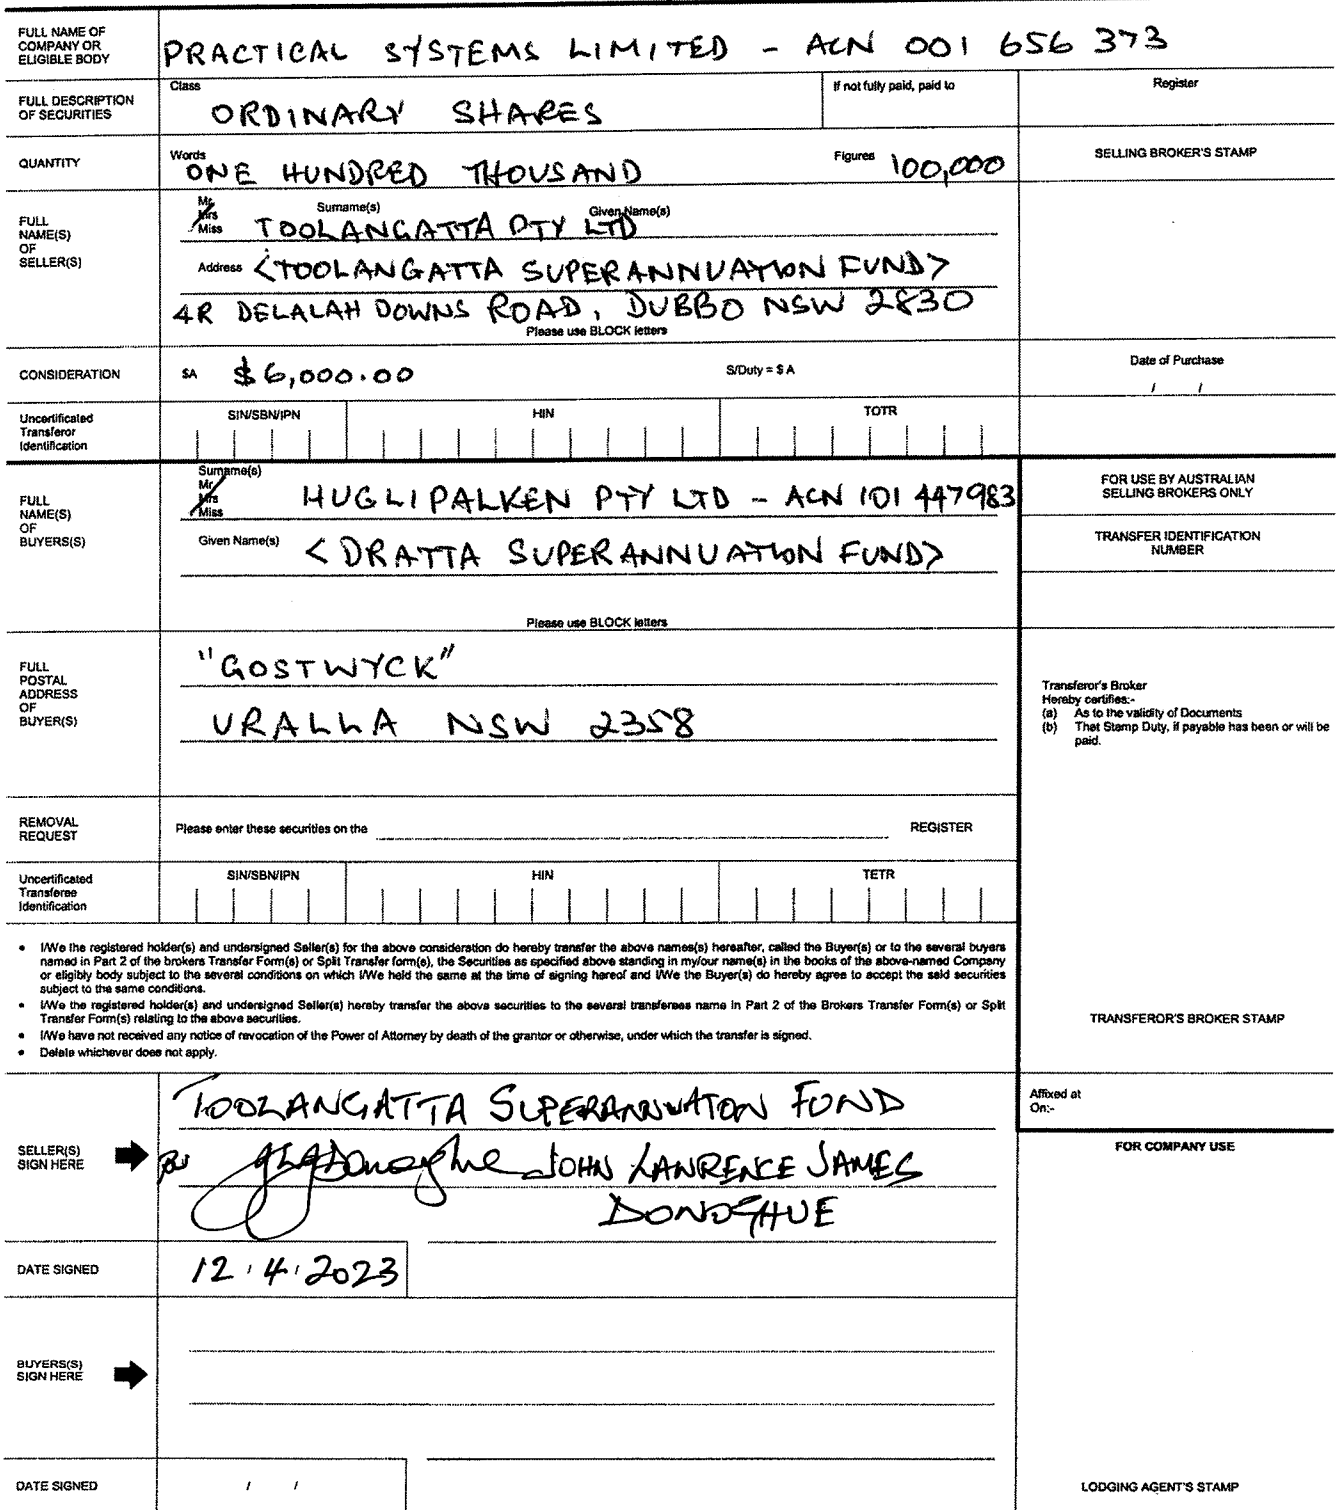 FULL NAME OF
COMPANY OR
ELIGIBLE BODY
PRACTICAL SYSTEMS LIMITED - ACN 001 656 373
FULL DESCRIPTION
OF SECURITIES
Class
ORDINARY SHARES
If not fully paid, paid to
Register
QUANTITY
Words
ONE HUNDRED THOUSAND
Figures 100,000
SELLING BROKER'S STAMP
FULL
NAME(S)
OF
SELLER(S)
Mr
Mrs
Miss
Surname(s)
Given Name(s)
TOOLANGATTA PTY LTD
Address <TOOLANGATTA SUPERANNUATION FUND>
4R DELALAH DOWNS ROAD, DUBBO NSW 2830
Please use BLOCK letters
CONSIDERATION
$A $6,000.00
S/Duty = $ A
Date of Purchase
/ /
Uncertificated
Transferor
Identification
SIN/SBN/IPN
HIN
TOTR
FULL
NAME(S)
OF
BUYERS(S)
Surname(s)
Mr
Mrs
Miss
HUGLIPALKEN PTY LTD - ACN 101 447983
Given Name(s) <DRATTA SUPERANNUATION FUND>
Please use BLOCK letters
FOR USE BY AUSTRALIAN
SELLING BROKERS ONLY
TRANSFER IDENTIFICATION
NUMBER
FULL
POSTAL
ADDRESS
OF
BUYER(S)
"GOSTWYCK"
URALLA NSW 2358
Transferor's Broker
Hereby certifies:-
(a) As to the validity of Documents
(b) That Stamp Duty, if payable has been or will be
paid.
REMOVAL
REQUEST
Please enter these securities on the
REGISTER
Uncertificated
Transferee
Identification
SIN/SBN/IPN
HIN
TETR
• I/We the registered holder(s) and undersigned Seller(s) for the above consideration do hereby transfer the above names(s) hereafter, called the Buyer(s) or to the several buyers
named in Part 2 of the brokers Transfer Form(s) or Split Transfer form(s), the Securities as specified above standing in my/our name(s) in the books of the above-named Company
or eligibly body subject to the several conditions on which I/We held the same at the time of signing hereof and I/We the Buyer(s) do hereby agree to accept the said securities
subject to the same conditions.
• I/We the registered holder(s) and undersigned Seller(s) hereby transfer the above securities to the several transferees name in Part 2 of the Brokers Transfer Form(s) or Split
Transfer Form(s) relating to the above securities.
• I/We have not received any notice of revocation of the Power of Attorney by death of the grantor or otherwise, under which the transfer is signed.
• Delete whichever does not apply.
TRANSFEROR'S BROKER STAMP
Affixed at
On:-
SELLER(S)
SIGN HERE
TOOLANGATTA SUPERANNUATON FUND
JOHN LAWRENCE JAMES
DONOGHUE
FOR COMPANY USE
DATE SIGNED
12.4.2023
BUYERS(S)
SIGN HERE
DATE SIGNED
/ /
LODGING AGENT'S STAMP